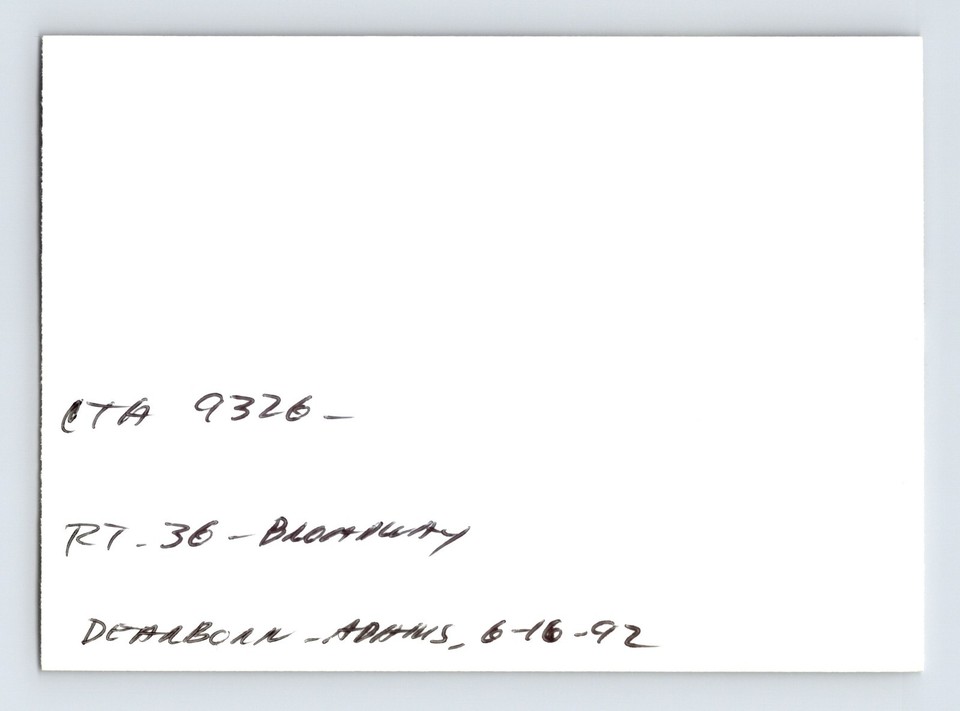 CTA 9326-
RT. 36-BROADWAY
DEARBORN-ADAMS, 6-16-92